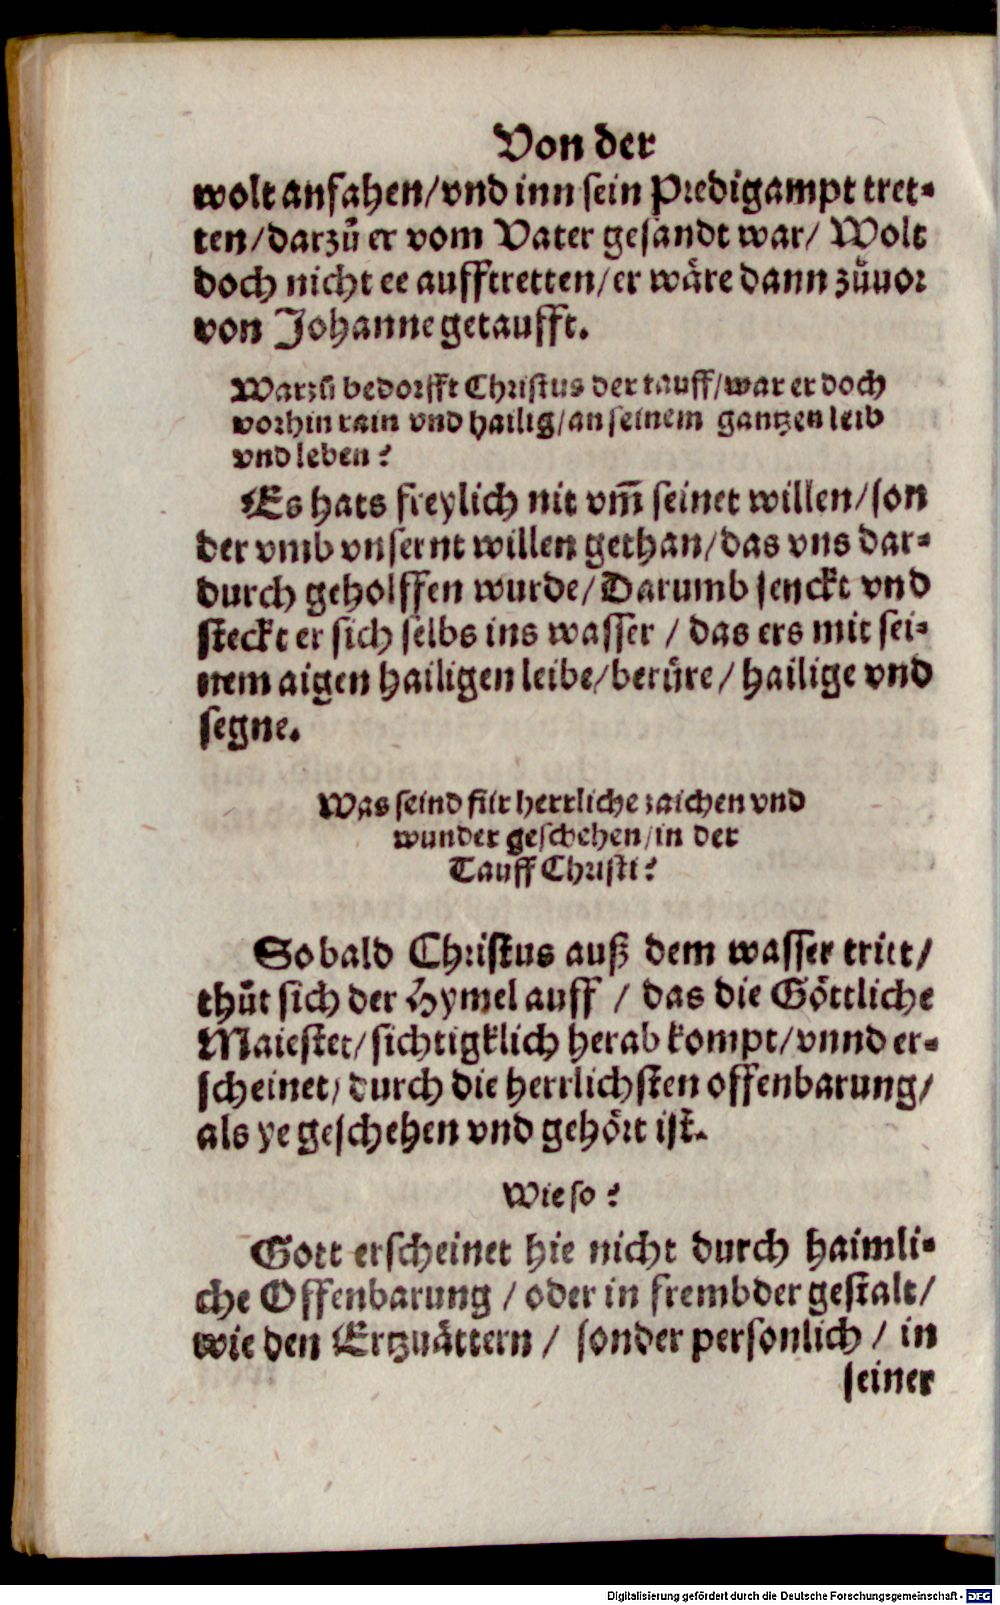 Von der
wolt anfahen/vnd inn sein Predigampt tret-
ten/darzů er vom Vater gesandt war/ Wolt
doch nicht ee aufftretten/er wäre dann zůuor
von Johanne getaufft.
Warzů bedorfft Christus der tauff/war er doch
vorhin rain vnd hailig/an seinem gantzen leib
vnd leben?
Es hats freylich nit vm̃ seinet willen/son
der vmb vnsernt willen gethan/das vns dar-
durch geholffen wurde/Darumb senckt vnd
steckt er sich selbs ins wasser / das ers mit sei-
nem aigen hailigen leibe/berüre/ hailige vnd
segne.
Was seind für herrliche zaichen vnd
wunder geschehen/in der
Tauff Christi?
So bald Christus auß dem wasser tritt/
thůt sich der Hymel auff / das die Göttliche
Maiestet/sichtigklich herab kompt/vnnd er-
scheinet/durch die herrlichsten offenbarung/
als ye geschehen vnd gehört ist.
Wie so?
Gott erscheinet hie nicht durch haimli-
che Offenbarung / oder in frembder gestalt/
wie den Ertzuättern / sonder personlich / in
seiner
Digitalisierung gefördert durch die Deutsche Forschungsgemeinschaft - DFG